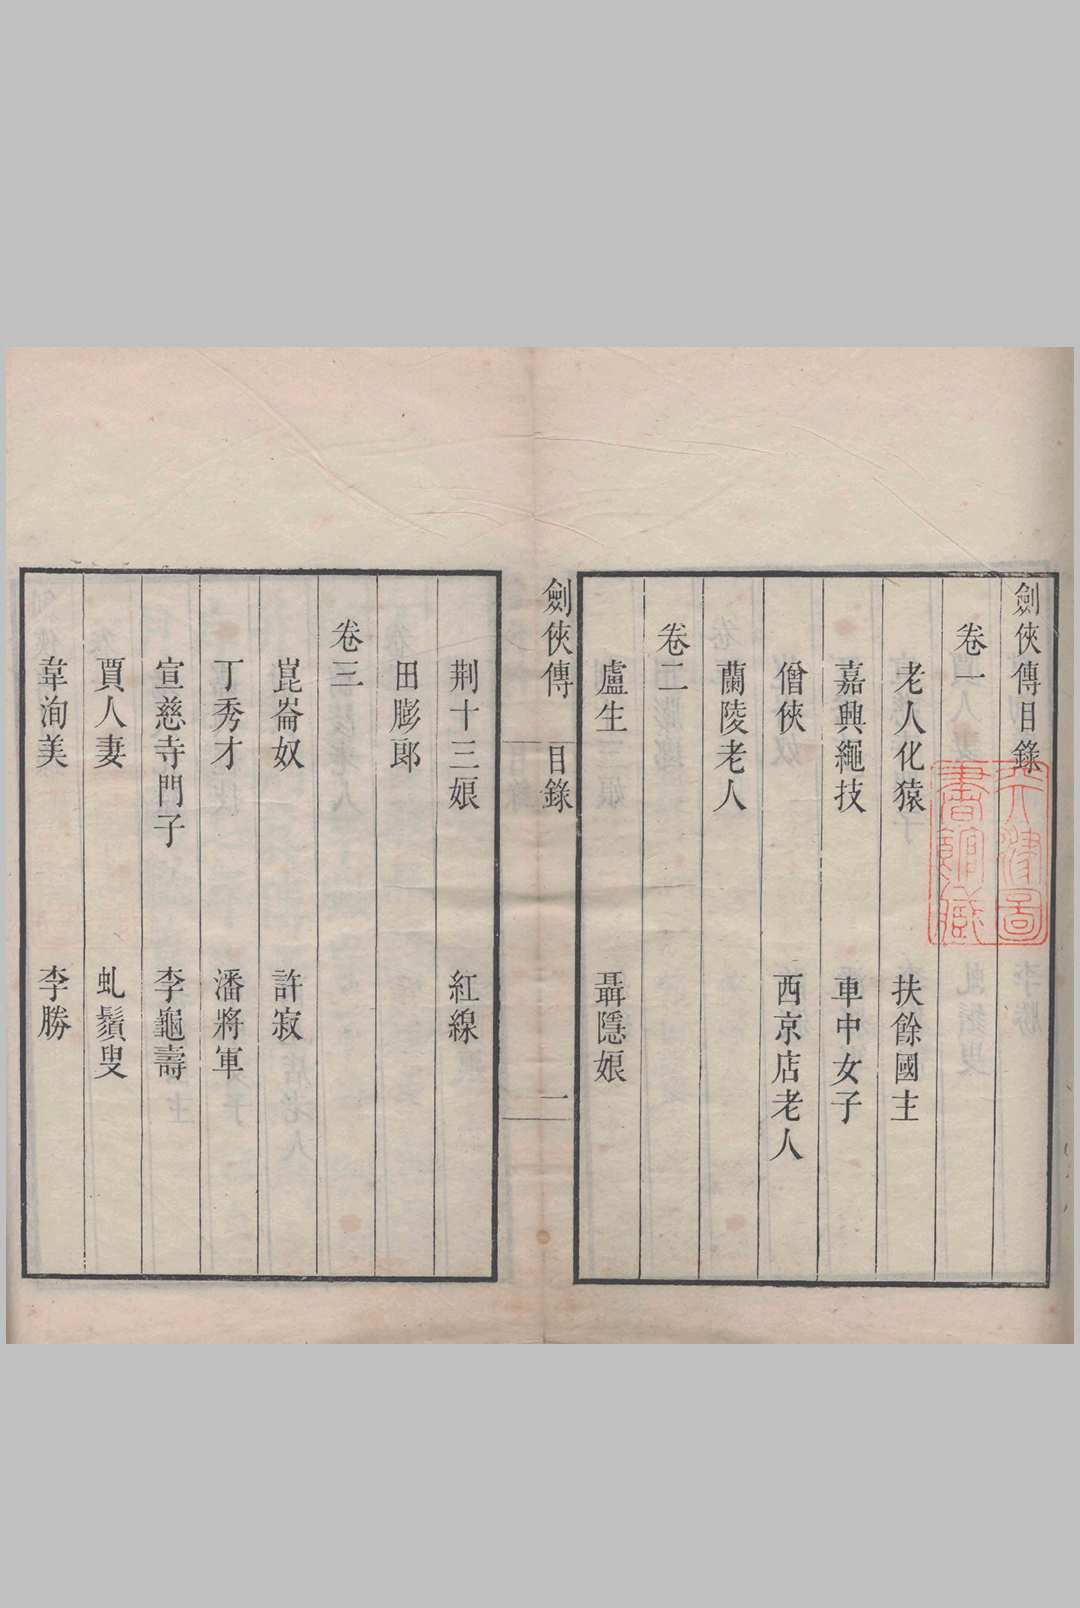 劍俠傳目錄
卷一
老人化猿　扶餘國主
嘉興繩技　車中女子
僧俠　西京店老人
蘭陵老人
卷二
盧生　聶隱娘
劍俠傳　目錄　一
荆十三娘　紅線
田膨郎
卷三
崑崙奴　許寂
丁秀才　潘將軍
宣慈寺門子　李龜壽
賈人妻　虬鬚叟
韋洵美　李勝
天津圖書館藏